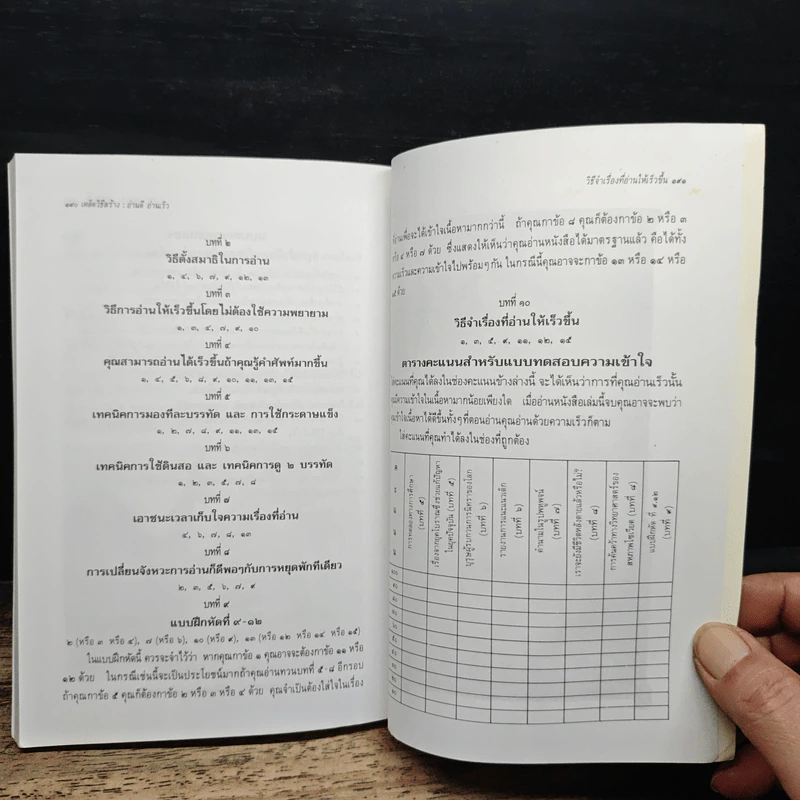 ๑๙๐ เคล็ดวิธีสร้าง : อ่านดี อ่านเร็ว
บทที่ ๒
วิธีตั้งสมาธิในการอ่าน
๑, ๔, ๖, ๗, ๙, ๑๒, ๑๓
บทที่ ๓
วิธีการอ่านให้เร็วขึ้นโดยไม่ต้องใช้ความพยายาม
๑, ๓, ๔, ๗, ๙, ๑๐
บทที่ ๔
คุณสามารถอ่านได้เร็วขึ้นถ้าคุณรู้คำศัพท์มากขึ้น
๑, ๔, ๕, ๖, ๘, ๙, ๑๐, ๑๑, ๑๓, ๑๕
บทที่ ๕
เทคนิคการมองทีละบรรทัด และ การใช้กระดาษแข็ง
๑, ๒, ๗, ๘, ๙, ๑๑, ๑๓, ๑๕
บทที่ ๖
เทคนิคการใช้ดินสอ และ เทคนิคการดู ๒ บรรทัด
๑, ๒, ๓, ๕, ๗, ๘
บทที่ ๗
เอาชนะเวลาเก็บใจความเรื่องที่อ่าน
๔, ๖, ๗, ๘, ๑๓
บทที่ ๘
การเปลี่ยนจังหวะการอ่านก็ดีพอๆกับการหยุดพักทีเดียว
๒, ๓, ๕, ๖, ๗, ๙
บทที่ ๙
แบบฝึกหัดที่ ๙-๑๒
๒ (หรือ ๓ หรือ ๔), ๗ (หรือ ๖), ๑๐ (หรือ ๙), ๑๓ (หรือ ๑๒ หรือ ๑๔ หรือ ๑๕)
ในแบบฝึกหัดนี้ ควรจะจำไว้ว่า หากคุณกาข้อ ๑ คุณอาจจะต้องกาข้อ ๑๑ หรือ
๑๒ ด้วย ในกรณีเช่นนี้จะเป็นประโยชน์มากถ้าคุณอ่านทวนบทที่ ๕-๘ อีกรอบ
ถ้าคุณกาข้อ ๕ คุณก็ต้องกาข้อ ๒ หรือ ๓ หรือ ๔ ด้วย คุณจำเป็นต้องใส่ใจในเรื่อง
วิธีจำเรื่องที่อ่านให้เร็วขึ้น ๑๙๑
ที่อ่านเพื่อจะได้เข้าใจเนื้อหามากกว่านี้ ถ้าคุณกาข้อ ๘ คุณก็ต้องกาข้อ ๒ หรือ ๓
หรือ ๔ หรือ ๗ ด้วย ซึ่งแสดงให้เห็นว่าคุณอ่านหนังสือได้มาตรฐานแล้ว คือได้ทั้ง
ความเร็วและความเข้าใจไปพร้อมๆ กัน ในกรณีนี้คุณอาจจะกาข้อ ๑๓ หรือ ๑๔ หรือ
๑๕ ด้วย
บทที่ ๑๐
วิธีจำเรื่องที่อ่านให้เร็วขึ้น
๑, ๓, ๕, ๙, ๑๑, ๑๒, ๑๕
ตารางคะแนนสำหรับแบบทดสอบความเข้าใจ
คะแนนที่คุณได้ลงในช่องคะแนนข้างล่างนี้ จะได้เห็นว่าการที่คุณอ่านเร็วนั้น
มีความเข้าใจในเนื้อหามากน้อยเพียงใด เมื่ออ่านหนังสือเล่มนี้จบคุณอาจจะพบว่า
เข้าใจเนื้อหาได้ดีขึ้นทั้งๆที่ตอนอ่านคุณอ่านด้วยความเร็วก็ตาม
ใส่คะแนนที่คุณทำได้ลงในช่องที่ถูกต้อง
คะแนน
การทดสอบทางการศึกษา (บทที่ ๕)
(บทที่ ๕)
(บทที่ ๖)
(บทที่ ๖)
(บทที่ ๗)
เราจะยังมีชีวิตหลังตายแล้วหรือไม่? (บทที่ ๘)
การค้นคว้าทางวิทยาศาสตร์ของสหภาพโซเวียต (บทที่ ๘)
แบบฝึกหัด ที่ ๙-๑๒ (บทที่ ๙)